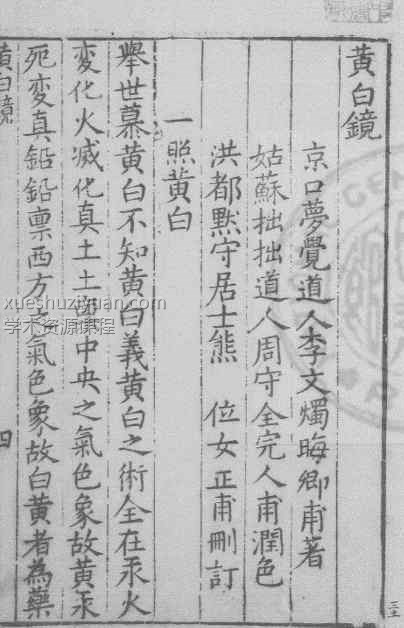 黄白鏡
京口夢覺道人李文燭晦卿甫著
姑蘇拙拙道人周守全完人甫潤色
洪都默守居士熊 位女正甫刪訂
一照黃白
舉世慕黃白不知黃白義黃白之術全在汞火
變化火滅化真土土凾中央之氣色象故黃汞
死變真鉛鉛禀西方之氣色象故白黃者為藥
黃白鏡
四
xueshuziyuan.com
学术资源课程